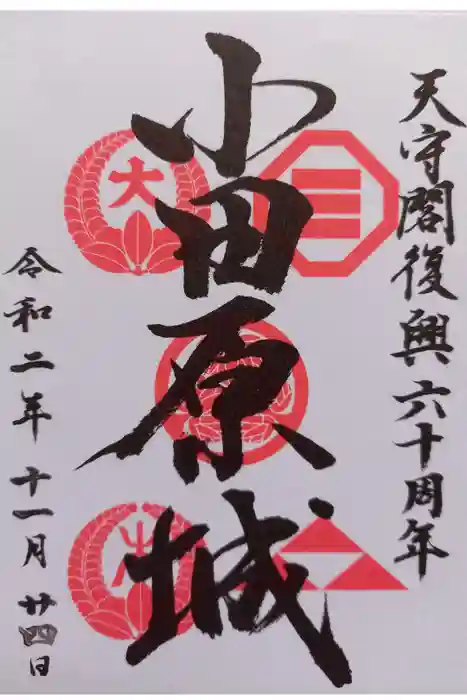 天守閣復興六十周年
小田原城
大
令和二年十一月廿四日